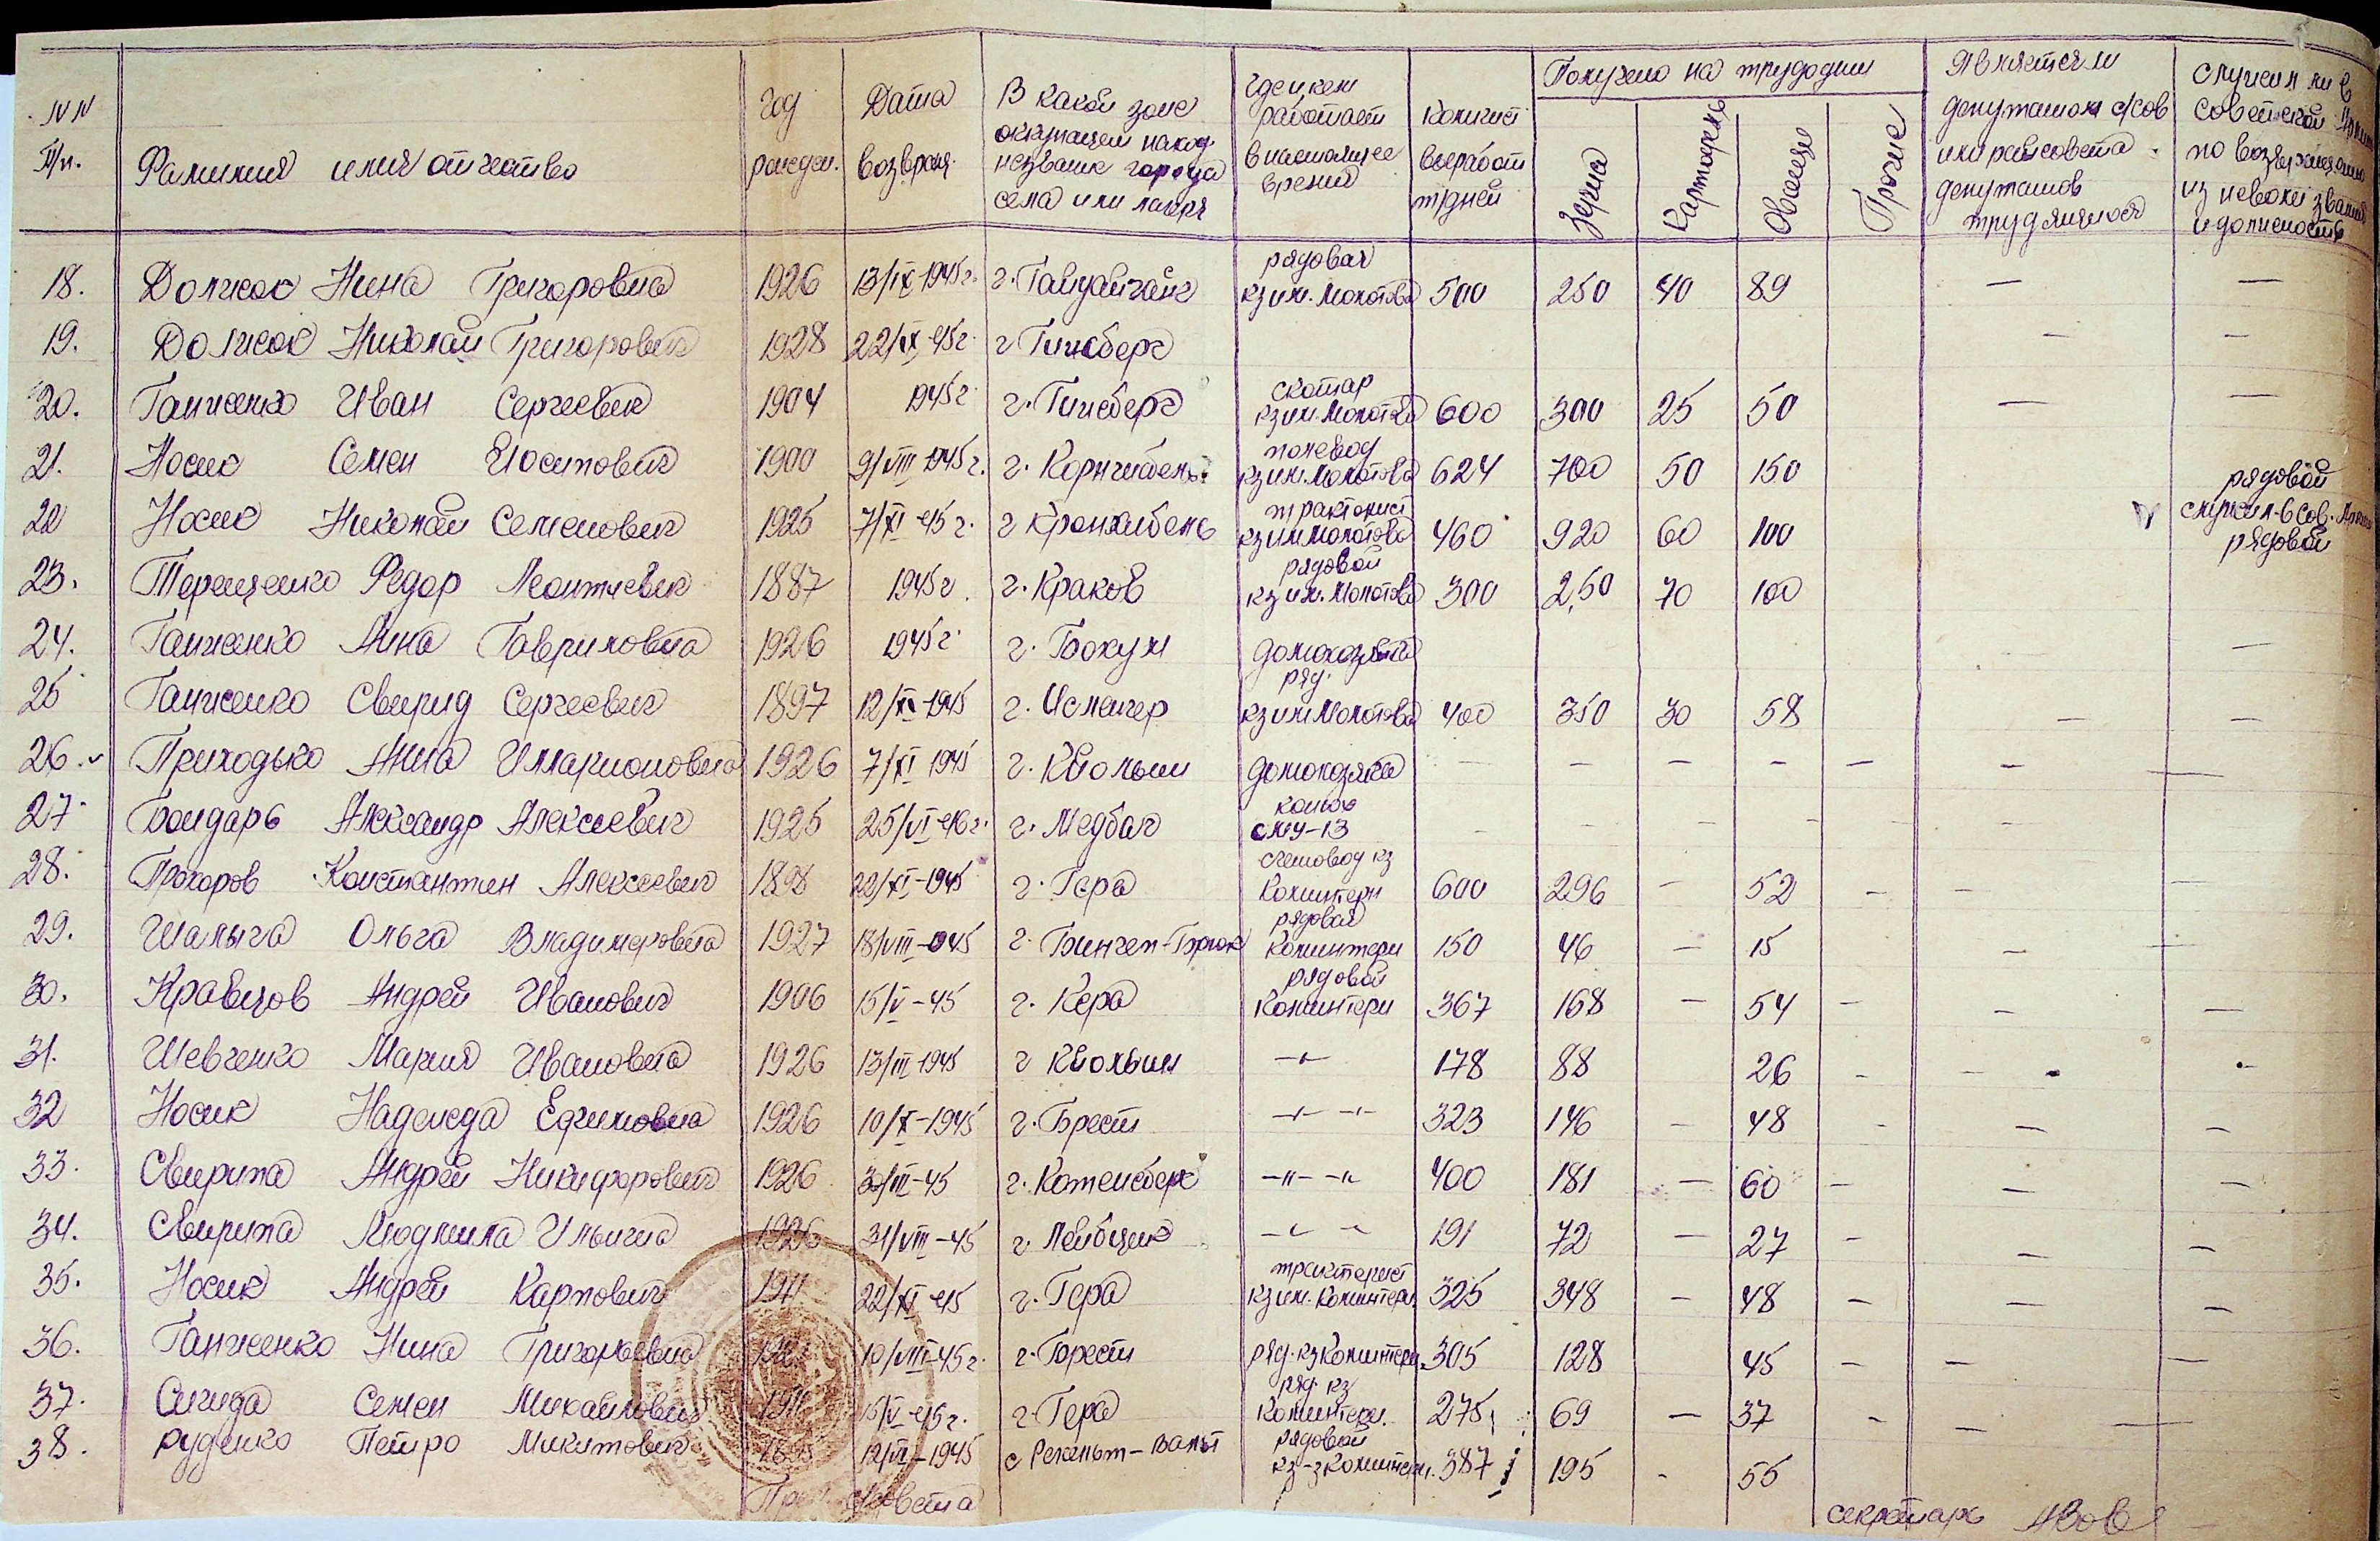 №№ п/п. Фамилия имя отчество год рожден. Дата возвращ. В какой зоне оккупации наход. название города села или лагеря где и кем работает в настоящее время Количест выработ т/дней Получено на трудодни Зерна Картофель Овощей Прочие Является ли депутатом с/сов или райсовета депутатов трудящихся Служил ли в Советской Армии по возвращению из неволи звание и должность
18. Должок Нина Григоровна 1926 13/IX-1945г. рядовая кз им. Молотова 500 250 40 89 — —
19. Должок Николай Григорович 1928 22/IX-45г. г Гинсберг — —
20. Ганженко Иван Сергеевич 1904 1945г. г. Гинсберг скотар кз им. Молотова 600 300 25 50 — —
21. Носик Семен Иосипович 1900 9/VIII 1945г. г. полевод кз им. Молотова 624 700 50 150 рядовой
22 Носик Николай Семенович 1925 7/XI-45г. г тракторист кз им Молотова 460 920 60 100 служил в Сов. Армии рядовой
23. Терещенко Федор Леонтиевич 1887 1945г. г. Краков рядовой кз им. Молотова 300 2,50 70 100
24. Ганженко Анна Гавриловна 1926 1945г. г. Бохум домохозяйка —
25 Ганженко Свирид Сергеевич 1897 12/XI-1945 г. ряд. кз им Молотова 400 350 30 58 — —
26. Приходько Анна Илларионовна 1926 7/XI 1945 г. Кйольни домохозяйка — — — — — — —
27 Бондарь Александр Алексеевич 1925 25/VI-46г. г. Медбаг конюх СМУ-13 — — — — — — —
28. Прохоров Константин Алексеевич 1898 22/XI-1945 г. Гера счетовод кз Коминтерн 600 296 — 52 — — —
29. Шалыга Ольга Владимеровна 1927 18/VIII-1945 г. Бинген-Брюк рядовая Коминтерн 150 46 — 15 — —
30. Кравцов Андрей Иванович 1906 15/V-45 г. Кера рядовой Коминтерн 367 168 — 54 — — —
31. Шевченко Мария Ивановна 1926 13/III-1945 г Кйольни —"— 178 88 26 — — —
32 Носик Надежда Ефимовна 1926 10/X-1945 г. Брест —"— —"— 323 146 — 48 — — —
33. Свирипа Андрей Никифорович 1926 30/III-45 г. Котенсберг —"— —"— 400 181 — 60 — — —
34. Свирипа Людмила Ильична 1926 31/VIII-45 г. Лейбциг —"— —"— 191 72 — 27 — — —
35. Носик Андрей Карпович 1911 22/XI-45 г. Гера тракторист кз им. Коминтерн 325 348 — 48 — — —
36. Ганженко Нина Григорьевна 10/VIII-45г. г. Брест ряд. кз Коминтерн. 305 128 45 — — —
37. Сигида Семен Михайлович 15/V-45г. г. Гера ряд. кз Коминтерн. 275 69 — 37 — — —
38. Руденко Петро Микитович 12/VI-1945 с рядовой кз-з Коминтерн. 387 195 - 55
Пред. с/совета секретарь